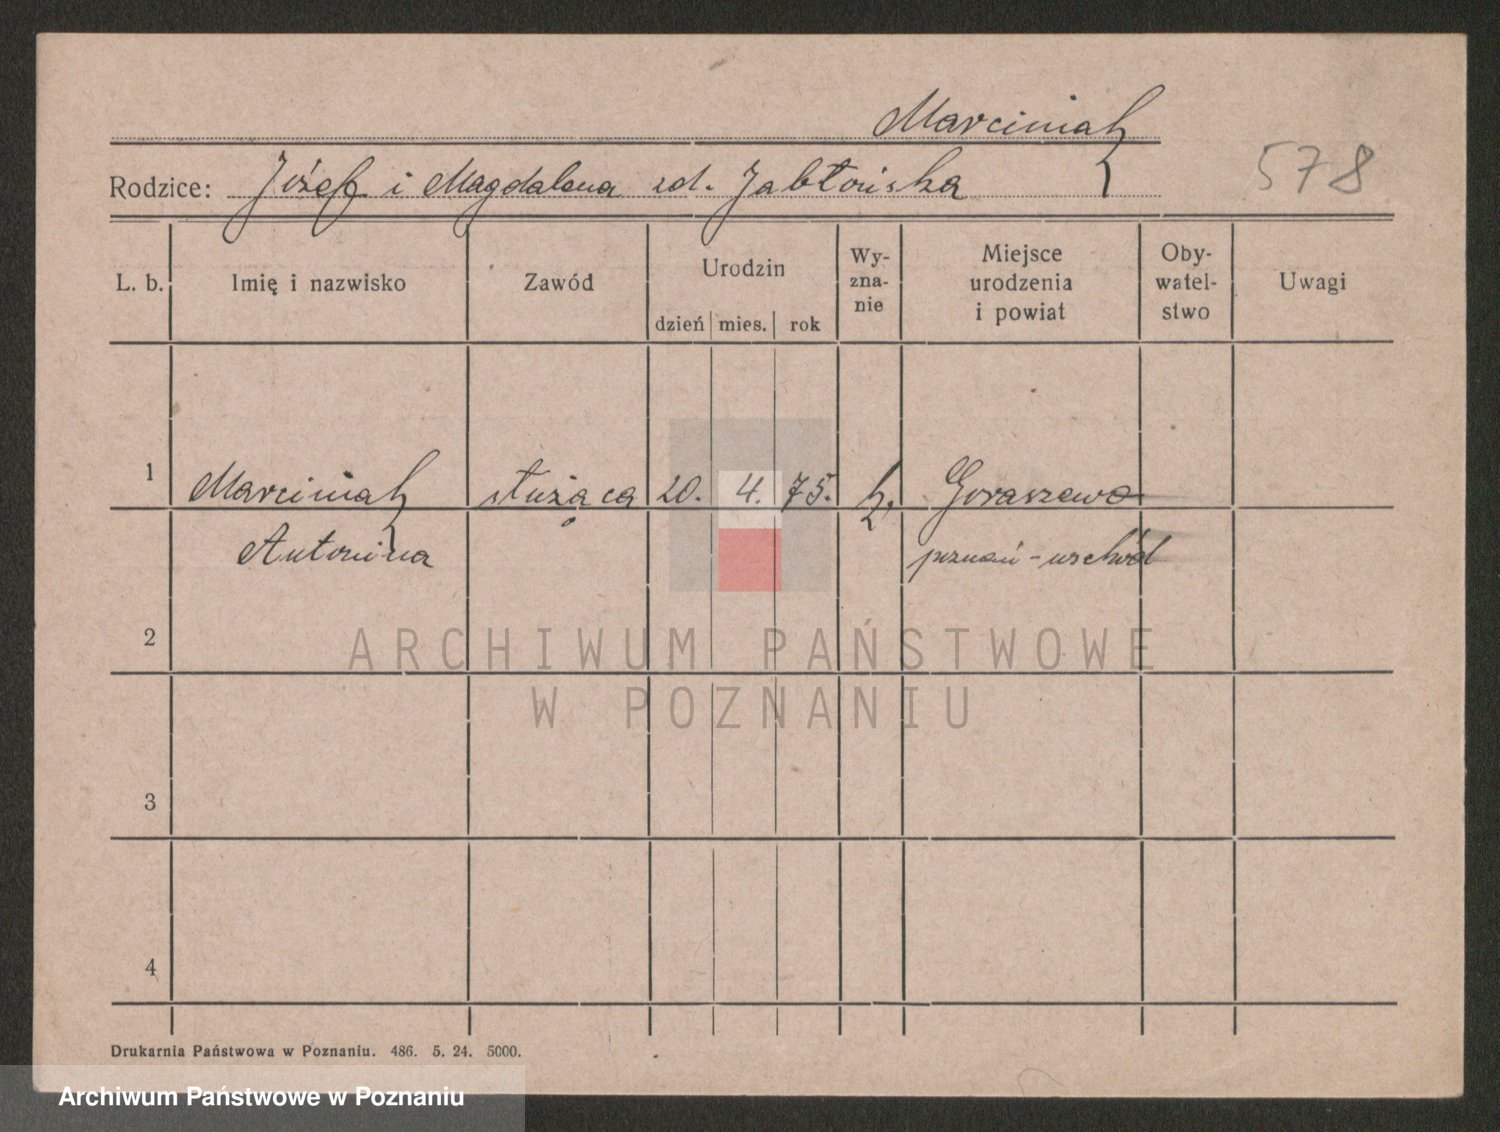 Marciniak
Rodzice: Józef i Magdalena zd. Jabłońska
578
L. b. Imię i nazwisko Zawód Urodzin dzień mies. rok Wy-zna-nie Miejsce urodzenia i powiat Oby-watel-stwo Uwagi
1 Marciniak służąca 20. 4. 75. k. Goraszewo
Antonina poznań-wschód
2
ARCHIWUM PAŃSTWOWE
W POZNANIU
3
4
Drukarnia Państwowa w Poznaniu. 486. 5. 24. 5000.
Archiwum Państwowe w Poznaniu